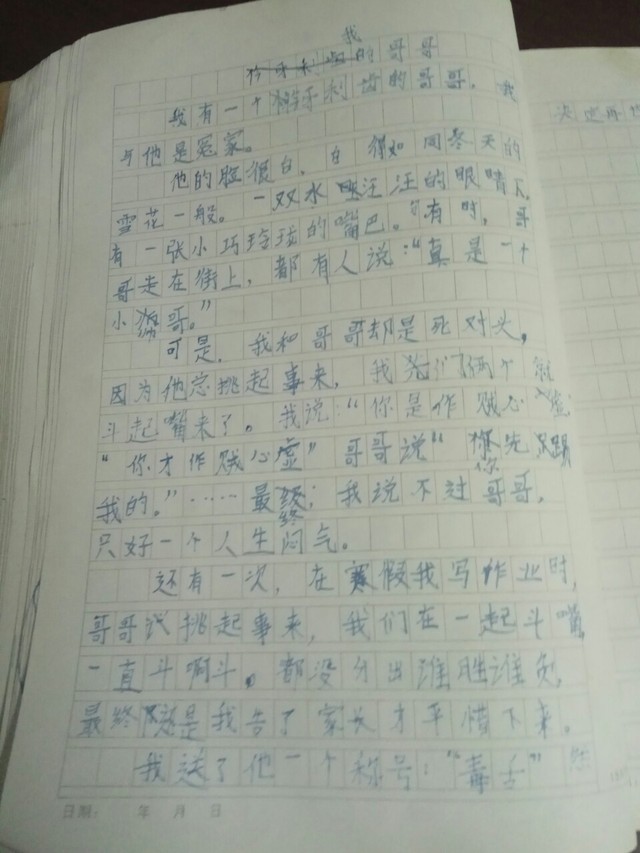 我的哥哥
我有一个伶牙利齿的哥哥，我
与他是冤家。
他的脸很白，白得如同冬天的
雪花一般。一双水汪汪的眼睛下，
有一张小巧玲珑的嘴巴。有时，哥
哥走在街上，都有人说：“真是一个
小 哥。”
可是，我和哥哥却是死对头，
因为他总挑起事来，我们俩个就
斗起嘴来了。我说：“你是作贼心虚
“你才作贼心虚”哥哥说“你先 踢
我的。”……最终，我说不过哥哥，
只好一个人生闷气。
还有一次，在寒假我写作业时，
哥哥 挑起事来，我们在一起斗嘴，
一直斗啊斗，都没分出谁胜谁负，
最终 是我告了家长才平 下来。
我送了他一个称号：“毒舌”
日期： 年 月 日
决定